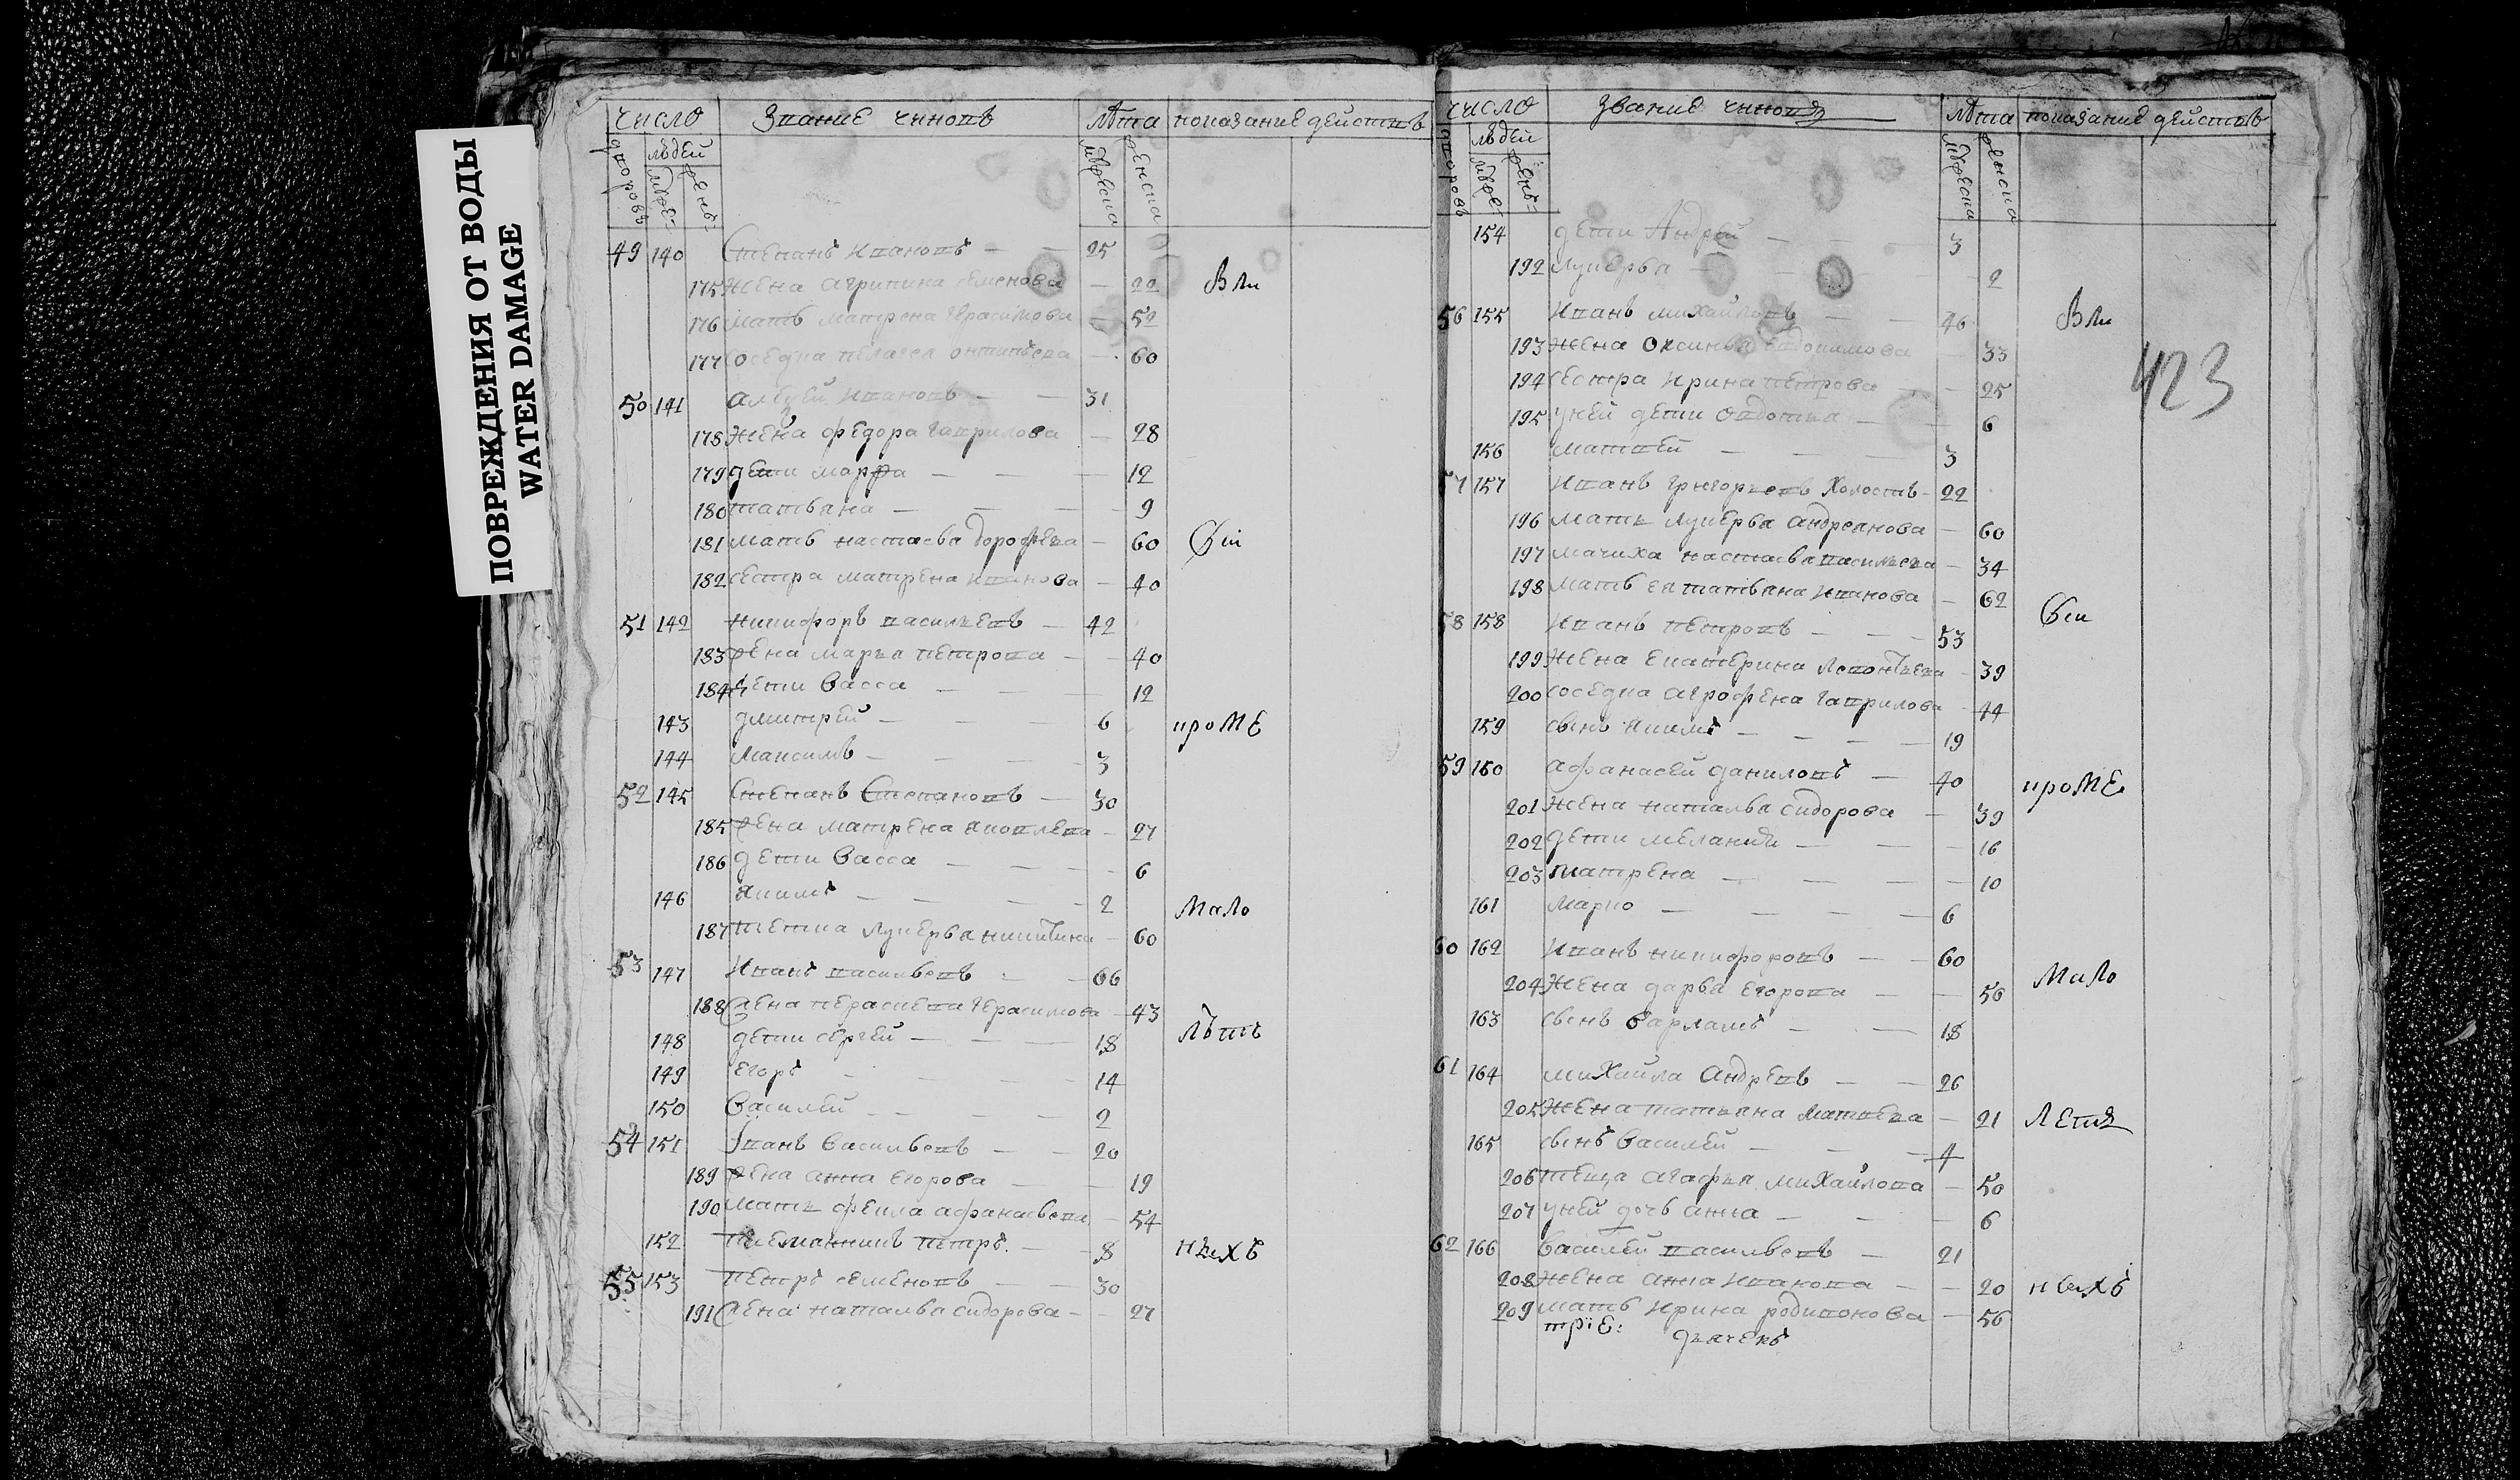 ПОВРЕЖДЕНИЯ ОТ ВОДЫ
WATER DAMAGE
число Звание чиновъ лѣта показание действъ
дворовъ людей мужеска женска
49 140 Степанъ Ивановъ — 25
175 жена агрипина семенова — 22 Вли
176 мать матрена герасимова — 52
177 соседка пелагея онтипьева — 60
50 141 алеѯей Ивановъ — 31
178 жена федора гаврилова — 28
179 дети марфа — 12
180 татьяна — 9
181 мать настасья дорофѣева — 60 Сіи
182 сестра матрена иванова — 40
51 142 никифоръ васильевъ — 42
183 жена марья петрова — 40
184 дети Васса — 12
143 дмитрей — 6 кроме
144 максимъ — 3
52 145 Степанъ Степановъ — 30
185 жена матрена яковлева — 27
186 дети Васса — 6
146 якимъ — 2 мало
187 тетка лукерья никитина — 60
53 147 Иванъ васильевъ — 66
188 жена герасимова — 43
148 дети сергей — 18 лѣтъ
149 егоръ — 14
150 Василей — 2
54 151 Іванъ Васильевъ — 20
189 жена анна егорова — 19
190 мать фекла афанасьева — 54
152 племянникъ петръ — 8 нъихъ
55 153 петръ семеновъ — 30
191 жена наталья сидорова — 27
число звание чиновъ лѣта показание действъ
дворовъ людей мужеска женска
154 дети Андрей — 3
192 лукерья — 2
56 155 Иванъ михайловъ — 46 Вли
193 жена оксинья евдокимова — 33
423
194 сестра ирина петрова — 25
195 уней дети овдотья — 6
156 матвей — 3
57 157 Иванъ григорьевъ холостъ — 22
196 мать лукерья андреянова — 60
197 мачиха настасья васильева — 34
198 мать ея татьяна иванова — 62
58 158 Иванъ петровъ — 53 Сіи
199 жена екатерина леонтьева — 39
200 соседка агрофена гаврилова — 44
159 сынъ якимъ — 19
59 160 афанасей даниловъ — 40 кроме
201 жена наталья сидорова — 39
202 дети мелания — 16
203 матрена — 10
161 марко — 6
60 162 Иванъ никифоровъ — 60
204 жена дарья егорова — 56 мало
163 сынъ варламъ — 18
61 164 михайла андревъ — 26
205 жена татьяна матвеева — 21 летя
165 сынъ Василей — 4
206 теща агафья михайлова — 50
207 уней дочь анна — 6
62 166 Василей васильевъ — 21
208 жена анна иванова — 20 нъихъ
209 мать ирина родионова — 56
трїе: дьячекъ